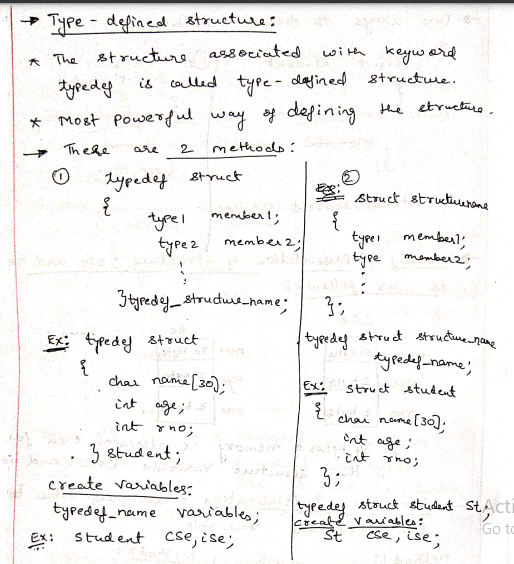 → Type - defined structure:
* The structure associated with keyword
typedef is called type-defined structure.
* Most powerful way of defining the structure.
→ These are 2 methods:
① typedef struct
{
type1 member1;
type2 member2;
⋮
}typedef_structure_name;
Ex: typedef struct
{
char name[30];
int age;
int rno;
} student;
create variables:
typedef_name variables;
Ex: student cse, ise;
②
Eg: struct structurename
{
type1 member1;
type member2;
⋮
};
typedef struct structure_name
typedef_name;
Ex: struct student
{
char name[30];
int age;
int rno;
};
typedef struct student St;
create variables:
St cse, ise;
Acti
Go to